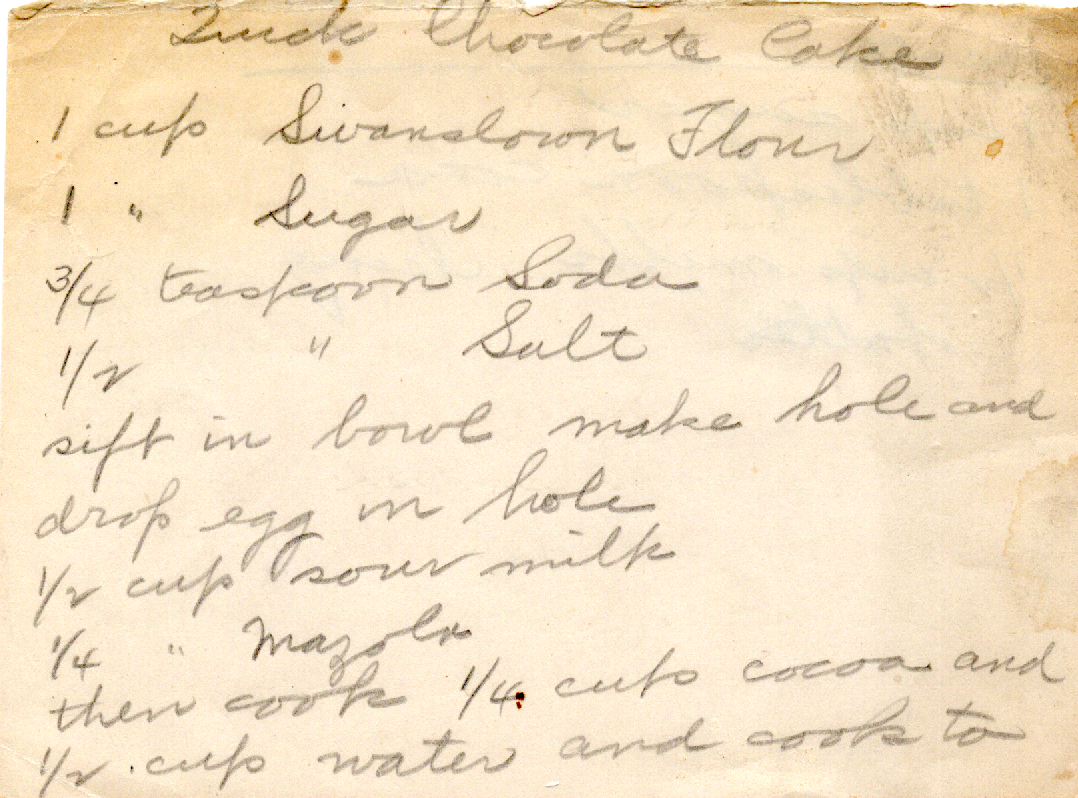 Quick Chocolate Cake
1 cup Swansdown Flour
1 " Sugar
3/4 teaspoon Soda
1/2 " Salt
sift in bowl make hole and
drop egg in hole
1/2 cup sour milk
1/4 " Mazola
then cook 1/4 cups cocoa and
1/2 cup water and cook to